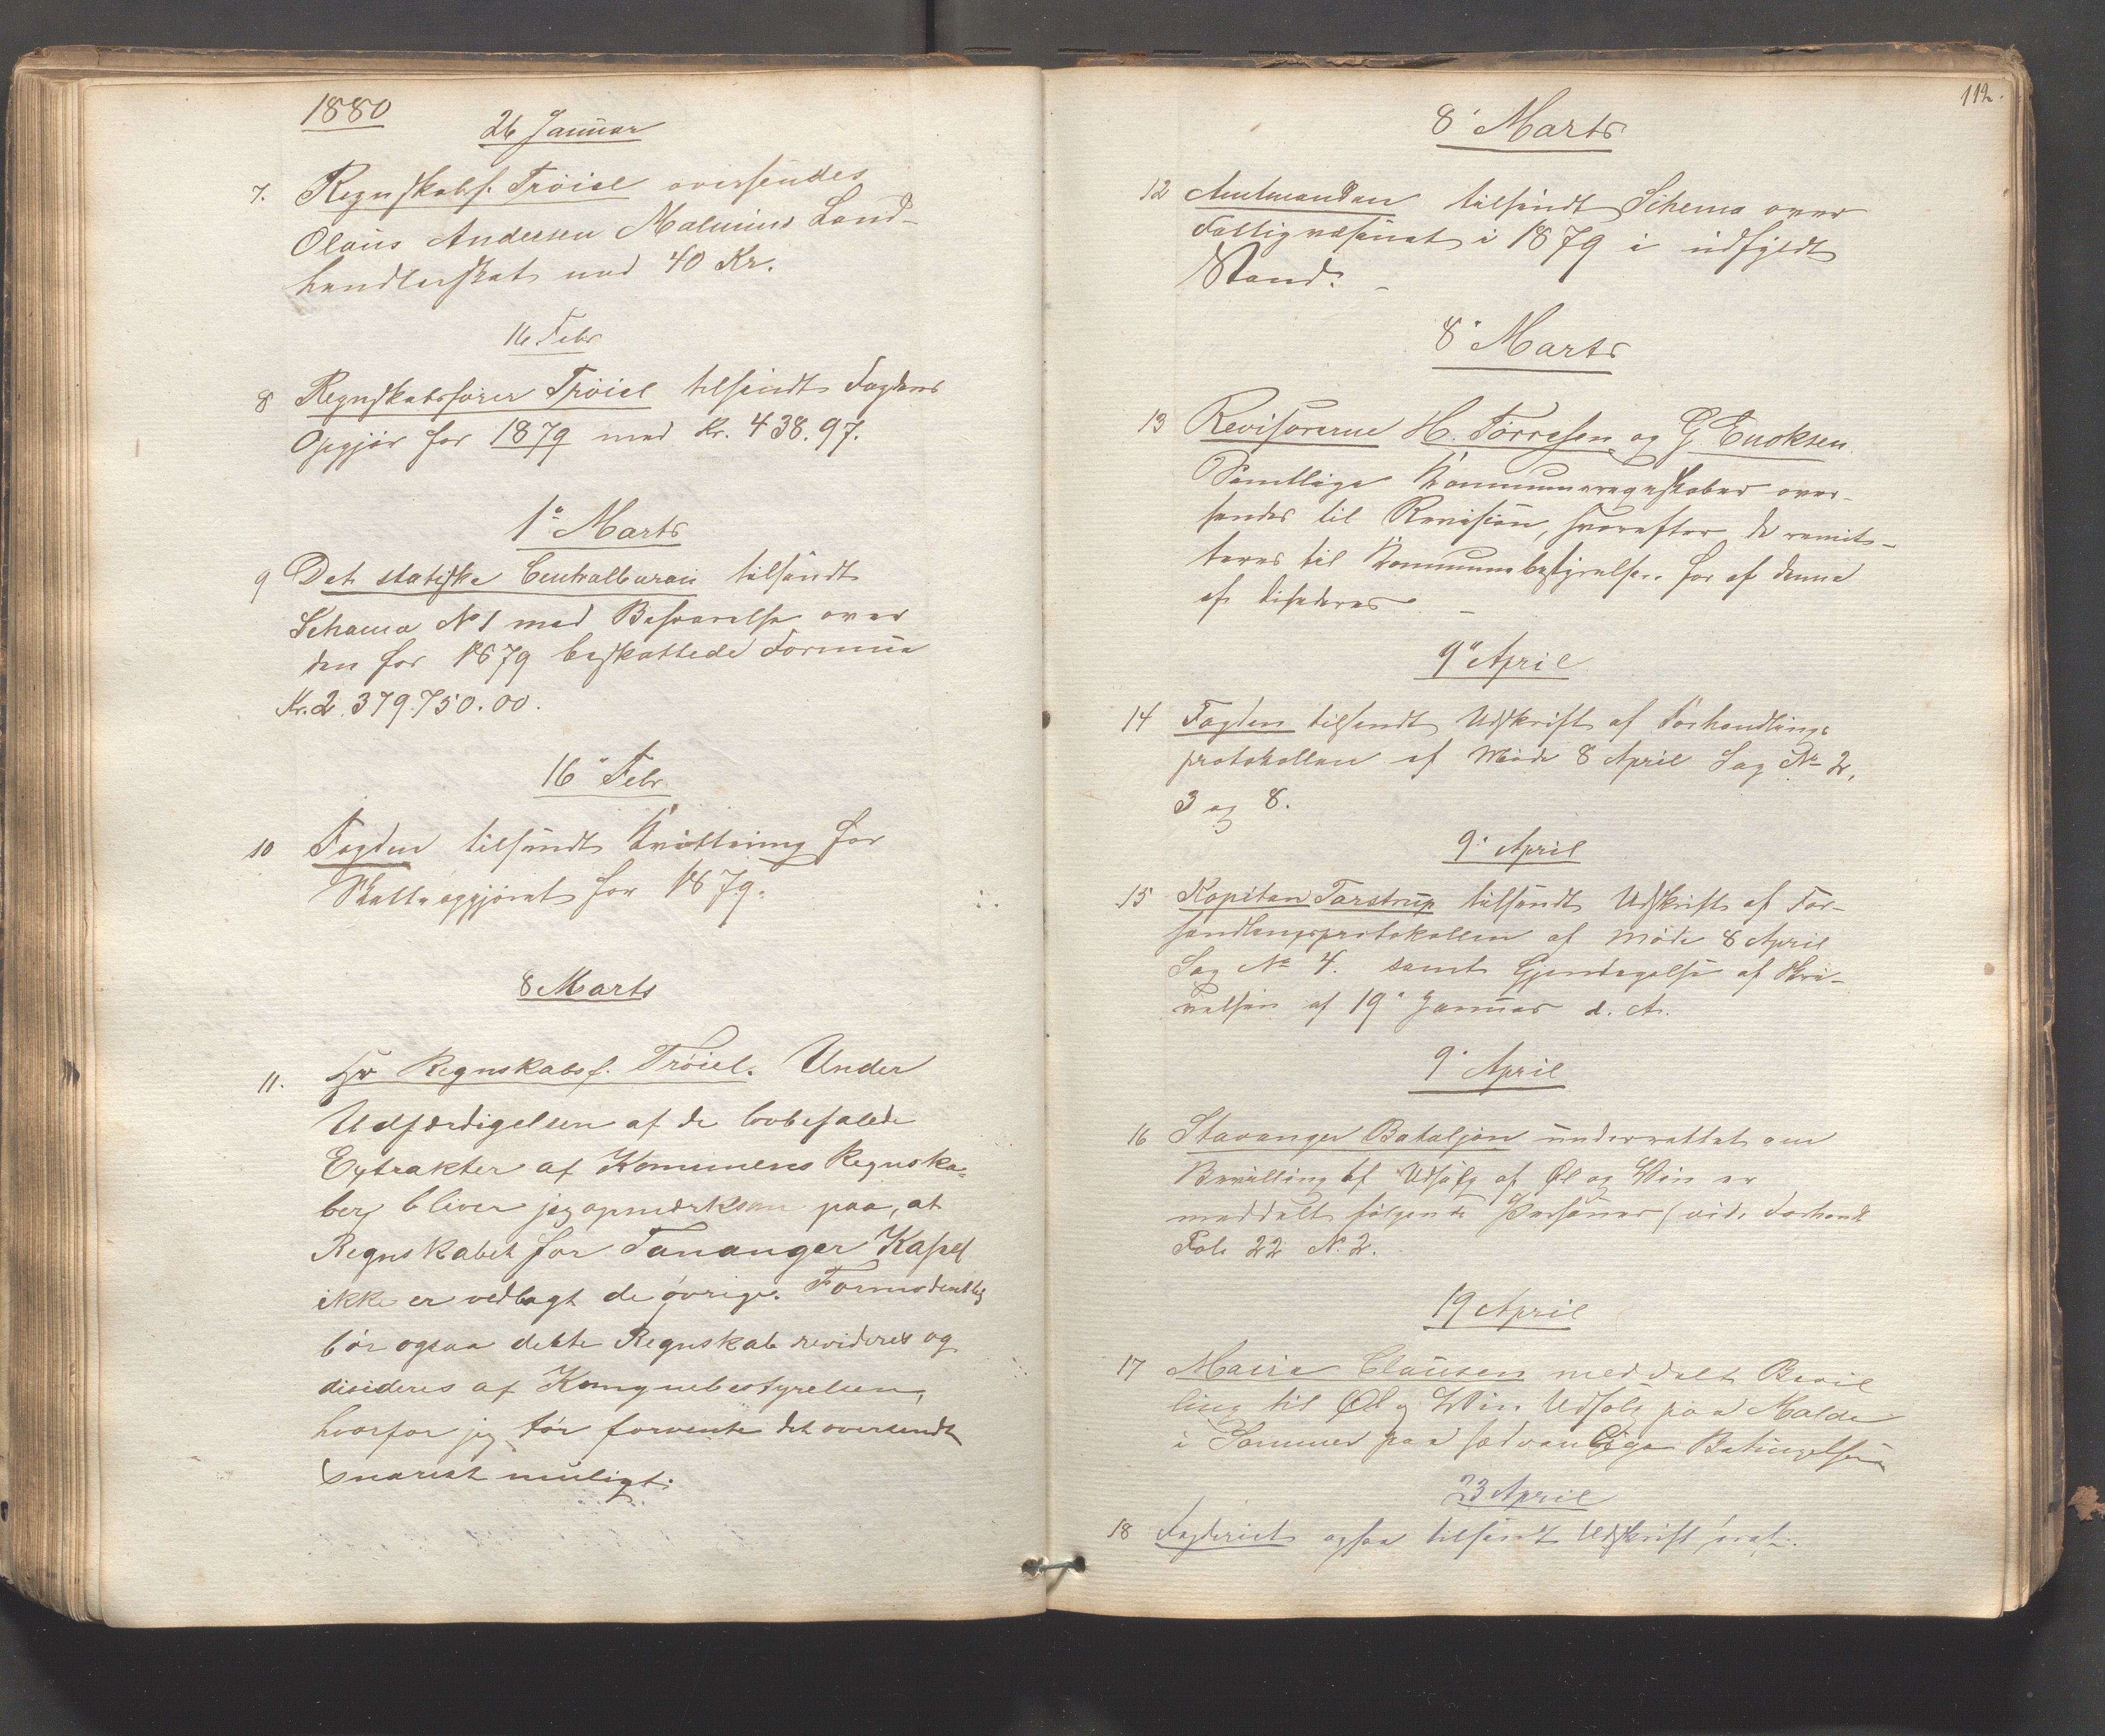 1880
26 Januar
7. Regnskabsf. Trøiel oversendes
Olaus Andersen Malmins Land-
handlerskat med 40 Kr.
16 Febr
8 Regnskabsfører Trøiel tilsendt Fogdens
Opgjør for 1879 med Kr. 438.97.
1ª Marts
9 Det statiske Centralbureau tilsendt
Schema Nº 1 med Besvarelse over
den for 1879 beskattede Formue
Kr. 2.379.750.00.
16" Febr
10 Fogden tilsendt Kvittering for
Skatteopgjøret for 1879.
8 Marts
11. Hr Regnskabsf. Trøiel. Under
Udfærdigelsen af de lovbefalede
Extrakter af Komunens Regnska-
ber bliver jeg opmærksom paa, at
Regnskabet for Tananger Kapel
ikke er vedlagt de øvrige. Formodentlig
bør ogsaa dette Regnskab revideres og
disideres af Komunebestyrelsen,
hvorfor jeg tør forvente det oversendt
snarest muligt.
112.
8' Marts
12 Amtmanden tilsendt Schema over
Fattigvæsenet i 1879 i udfyldt
Stand.
8" Marts
13 Revisorerne H. Torresen og G Enoksen.
Samtlige Kommuneregnskaber over-
sendes til Revision, hvorefter de remit-
teres til Kommunebestyrelsen for af denne
at disideres
9" April
14 Fogden tilsendt Udskrift af Forhandlings
protokollen af Møde 8 April Sag Nº 2,
3 og 8.
9" April
15 Kapitan Tarstrup tilsendt Udskrift af For-
handlingsprotokollen af Møde 8 April
Sag Nº 4. samt Gjentagelse af Skri-
velsen af 19" Januar d. A.
9" April
16 Stavanger Bataljon underrettet om
Bevilling af Udsalg af Øl og Vin er
meddelt følgende Personer (vide Forhandl
Fol. 22 N. 2.
19 April
17 Clausen meddelt Bevil
ling til Øl og Vin Udsalg paa Malde
i Sommer paa sædvanlige Betingelser
23 April
18 Fogderiet ogsaa tilsendt Udskrift